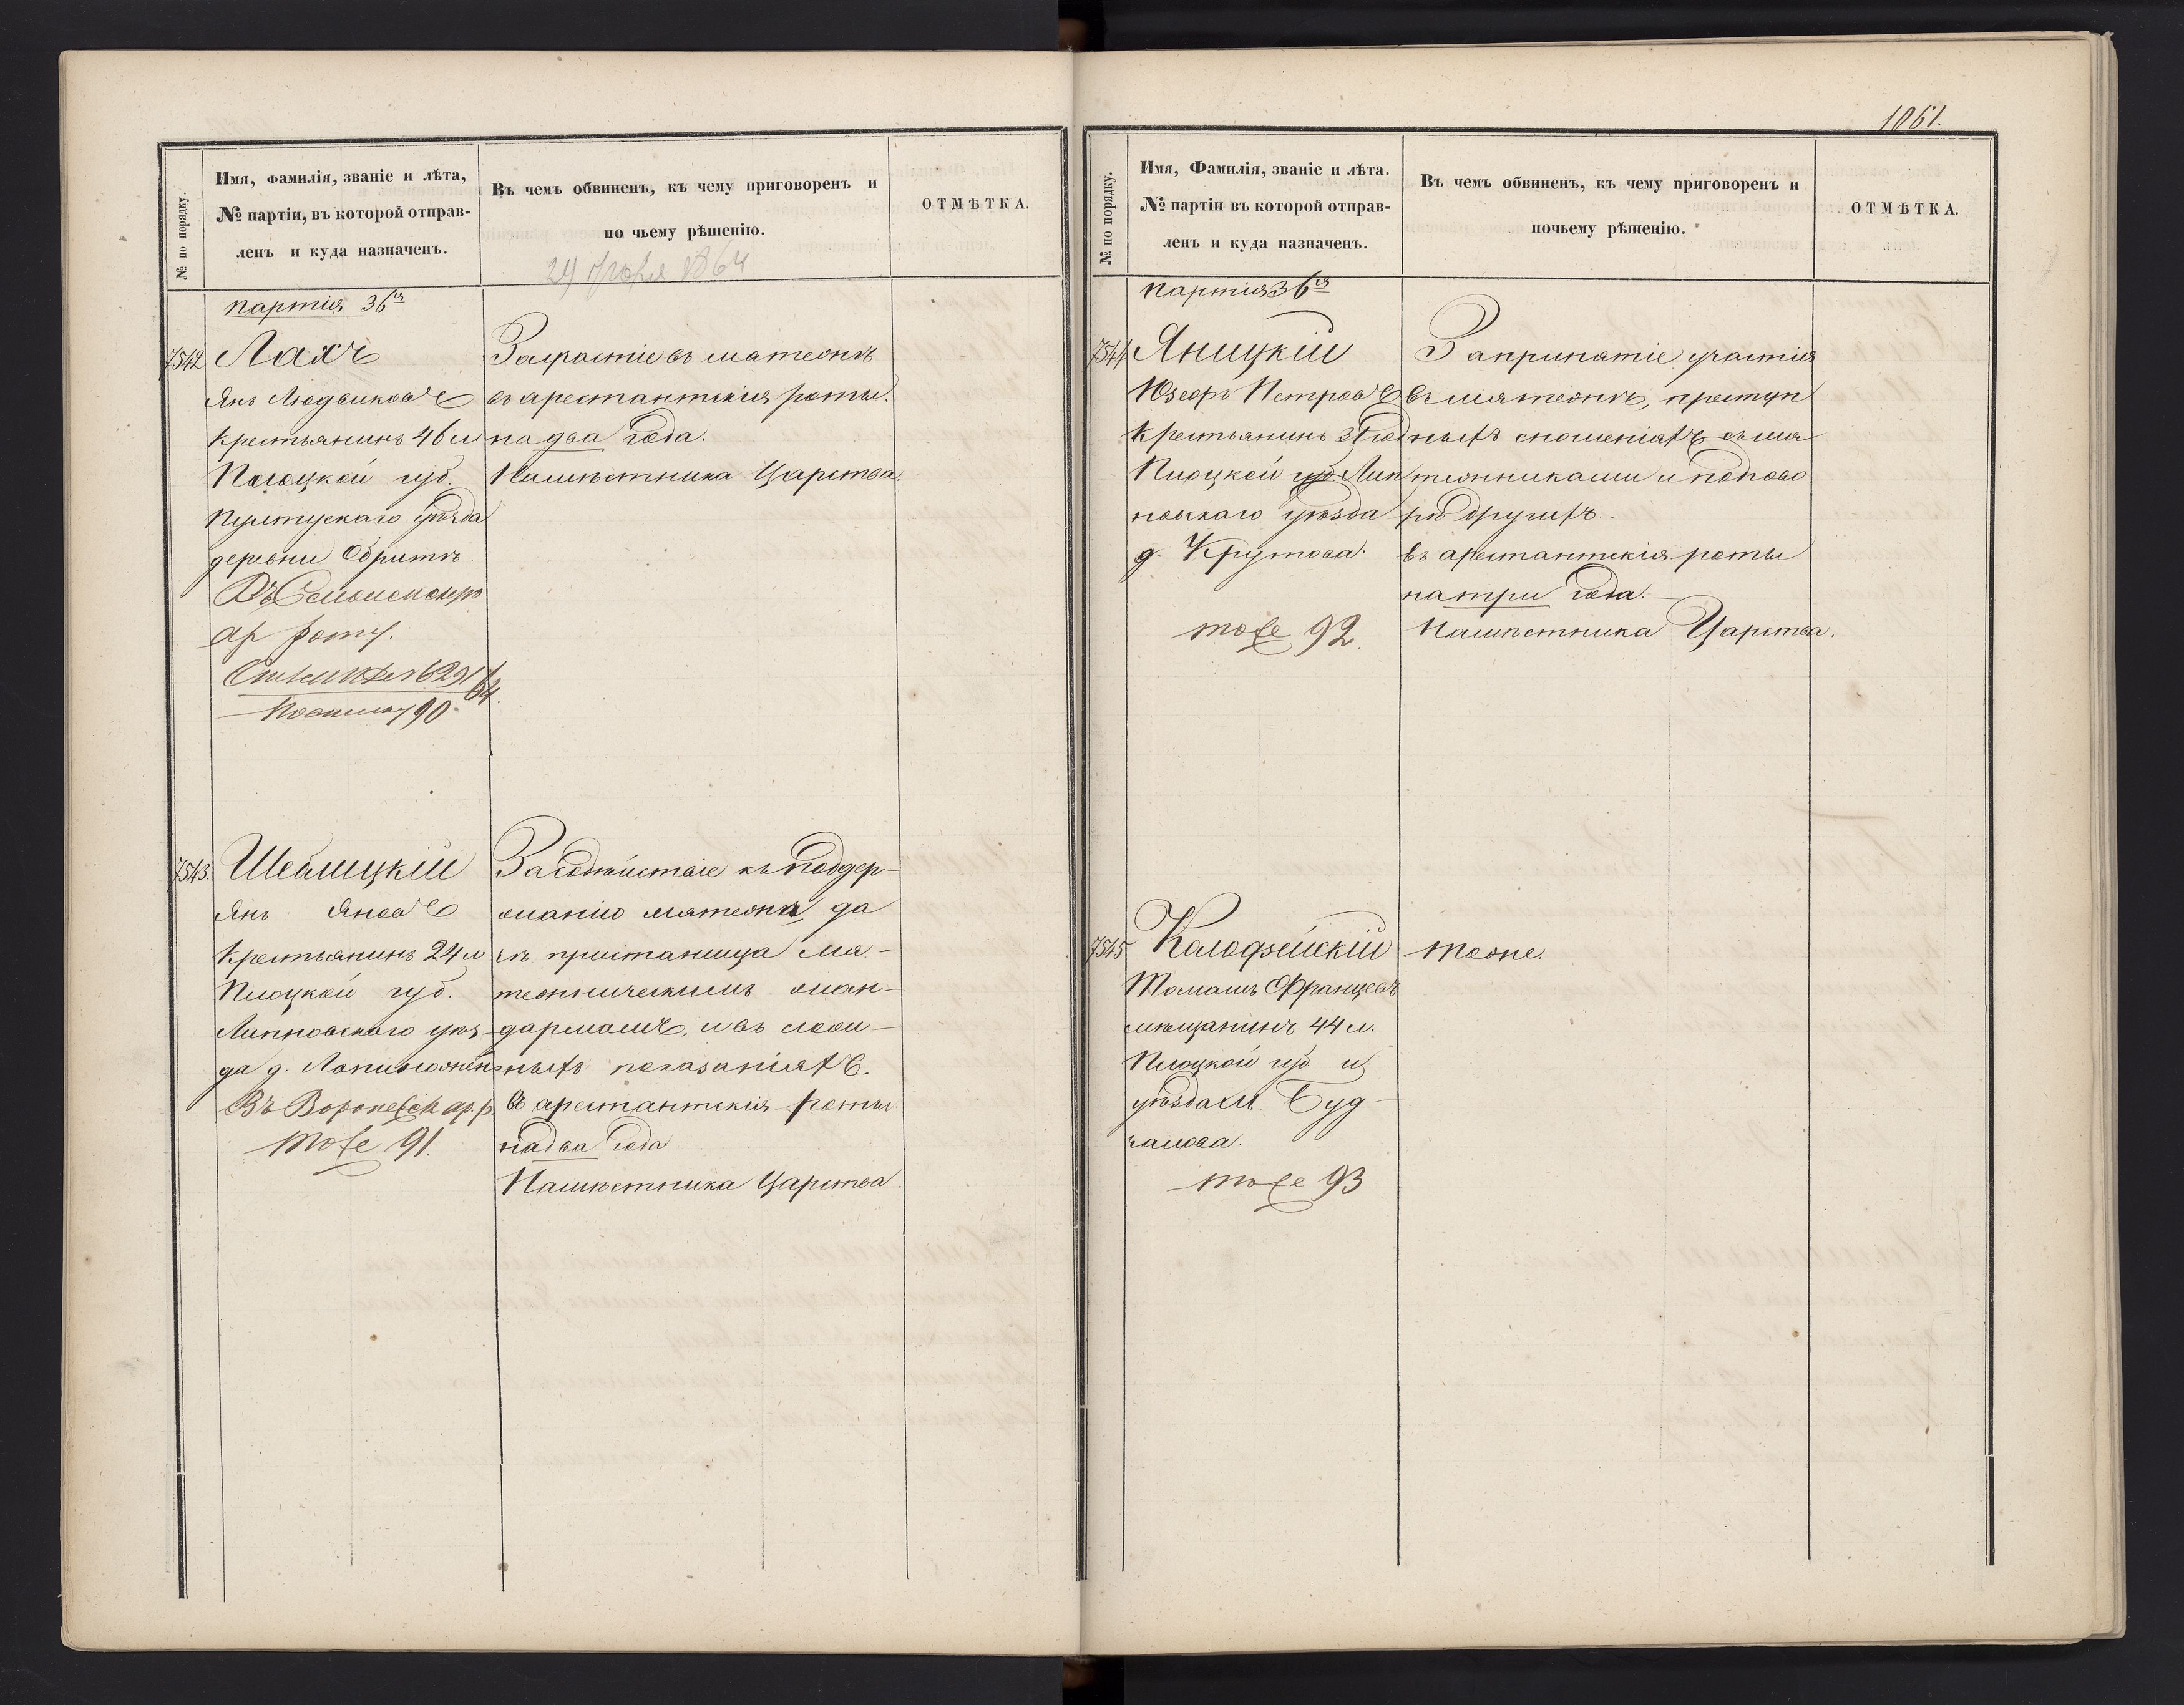 1061.
№ по порядку.
Имя, фамилія, званіе и лѣта,
№ партіи, въ которой отправ-
ленъ и куда назначенъ.
Въ чемъ обвиненъ, къ чему приговоренъ и
по чьему рѣшенію.
ОТМѢТКА.
1864
партія 36я
7542
Лахъ
Янъ Людвиковъ
Крестьянинъ 46 л
Плоцкой губ.
Пултускаго уѣзда
деревни Обрытѣ
ар роту.
90
За участіе въ мятежѣ
въ арестантскія роты
на два года.
Намѣстника Царства.
7543.
Шевлицкій
Янъ Яновъ
Крестьянинъ 24 л
Плоцкой губ.
Липновскаго уѣз-
да д.
Въ Воронежск ар. р.
тоже 91.
За содѣйствіе къ поддер-
жанію мятежа да
чѣ пристанища мя-
тежническимъ жан-
дармамъ, и въ лож-
ныхъ показаніяхъ.
въ арестантскія роты
на два года
Намѣстника Царства.
№ по порядку.
Имя, Фамилія, званіе и лѣта.
№ партіи въ которой отправ-
ленъ и куда назначенъ.
Въ чемъ обвиненъ, къ чему приговоренъ и
почьему рѣшенію.
ОТМѢТКА.
партія 36я
7544
Яницкій
Юзефъ Петровъ
Крестьянинъ 31 год
Плоцкой губ. Лип
новскаго уѣзда
д. Крутова.
тоже 92.
За принятіе участія
въ мятежѣ, преступ
ныхъ сношеніяхъ съ мя
тежниками и погово
рѣ другихъ.
въ арестантскія роты
на три года.
Намѣстника Царства.
7545
Колодзейскій
Томашъ Францевъ
мѣщанинъ 44 л.
Плоцкой губ и
уѣзда м. Буд
чалова.
тоже 93
тоже.